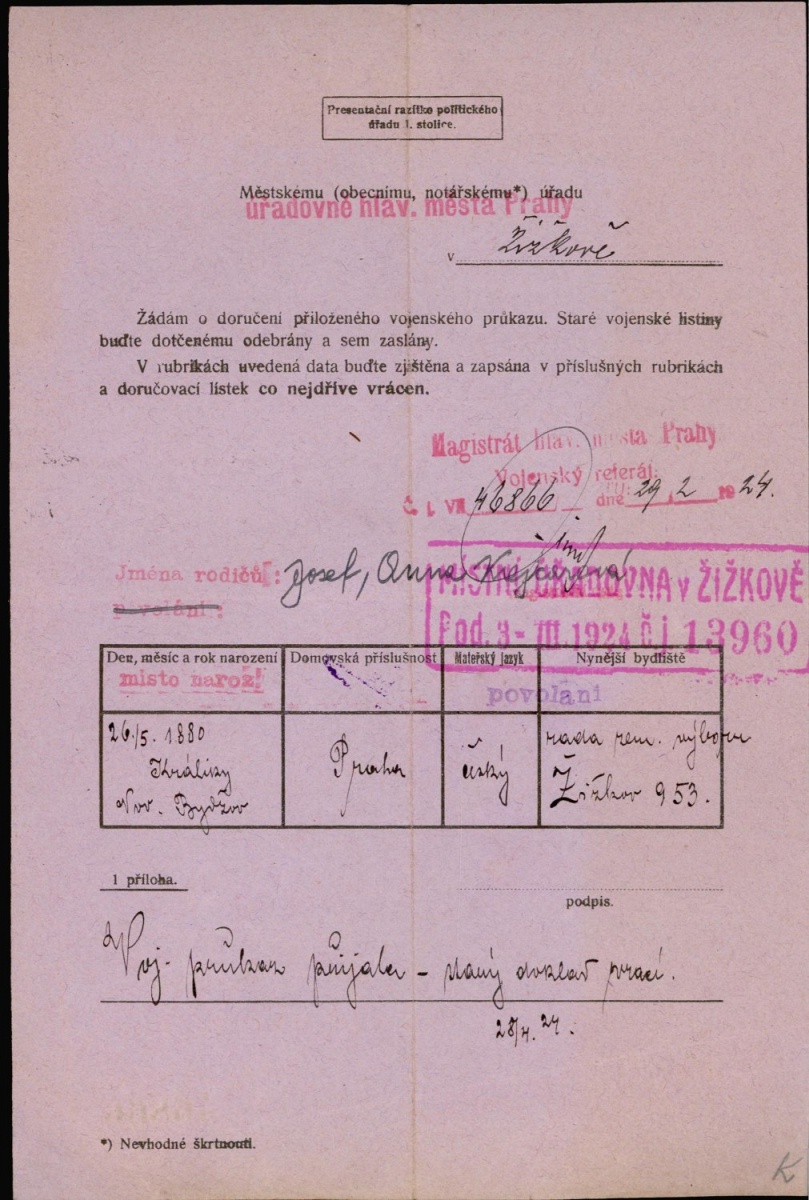 Presentační razítko politického
úřadu 1. stolice.
Městskému (obecnímu, notářskému*) úřadu
úřadovně hlav. města Prahy
v Žižkově
Žádám o doručení přiloženého vojenského průkazu. Staré vojenské listiny
buďte dotčenému odebrány a sem zaslány.
V rubrikách uvedená data buďte zjištěna a zapsána v příslušných rubrikách
a doručovací lístek co nejdříve vrácen.
Magistrát hlav. města Prahy
Vojenský referát
Č. j. VII 46866 dne 29/2 1924.
Jména rodičů: Josef, Anna
povolání:
MÍSTNÍ ÚŘADOVNA v ŽIŽKOVĚ
Pod. 3-III.1924 č.j. 13960
Den, měsíc a rok narození Domovská příslušnost Mateřský jazyk Nynější bydliště
místo naroz. povolani
26./5. 1880 Praha český rada zem. výboru
Králíky Žižkov 953.
Nov. Bydžov
1 příloha.
podpis.
Voj. průkaz přijala – starý doklad vrací.
28/4. 24.
*) Nevhodné škrtnouti.
K